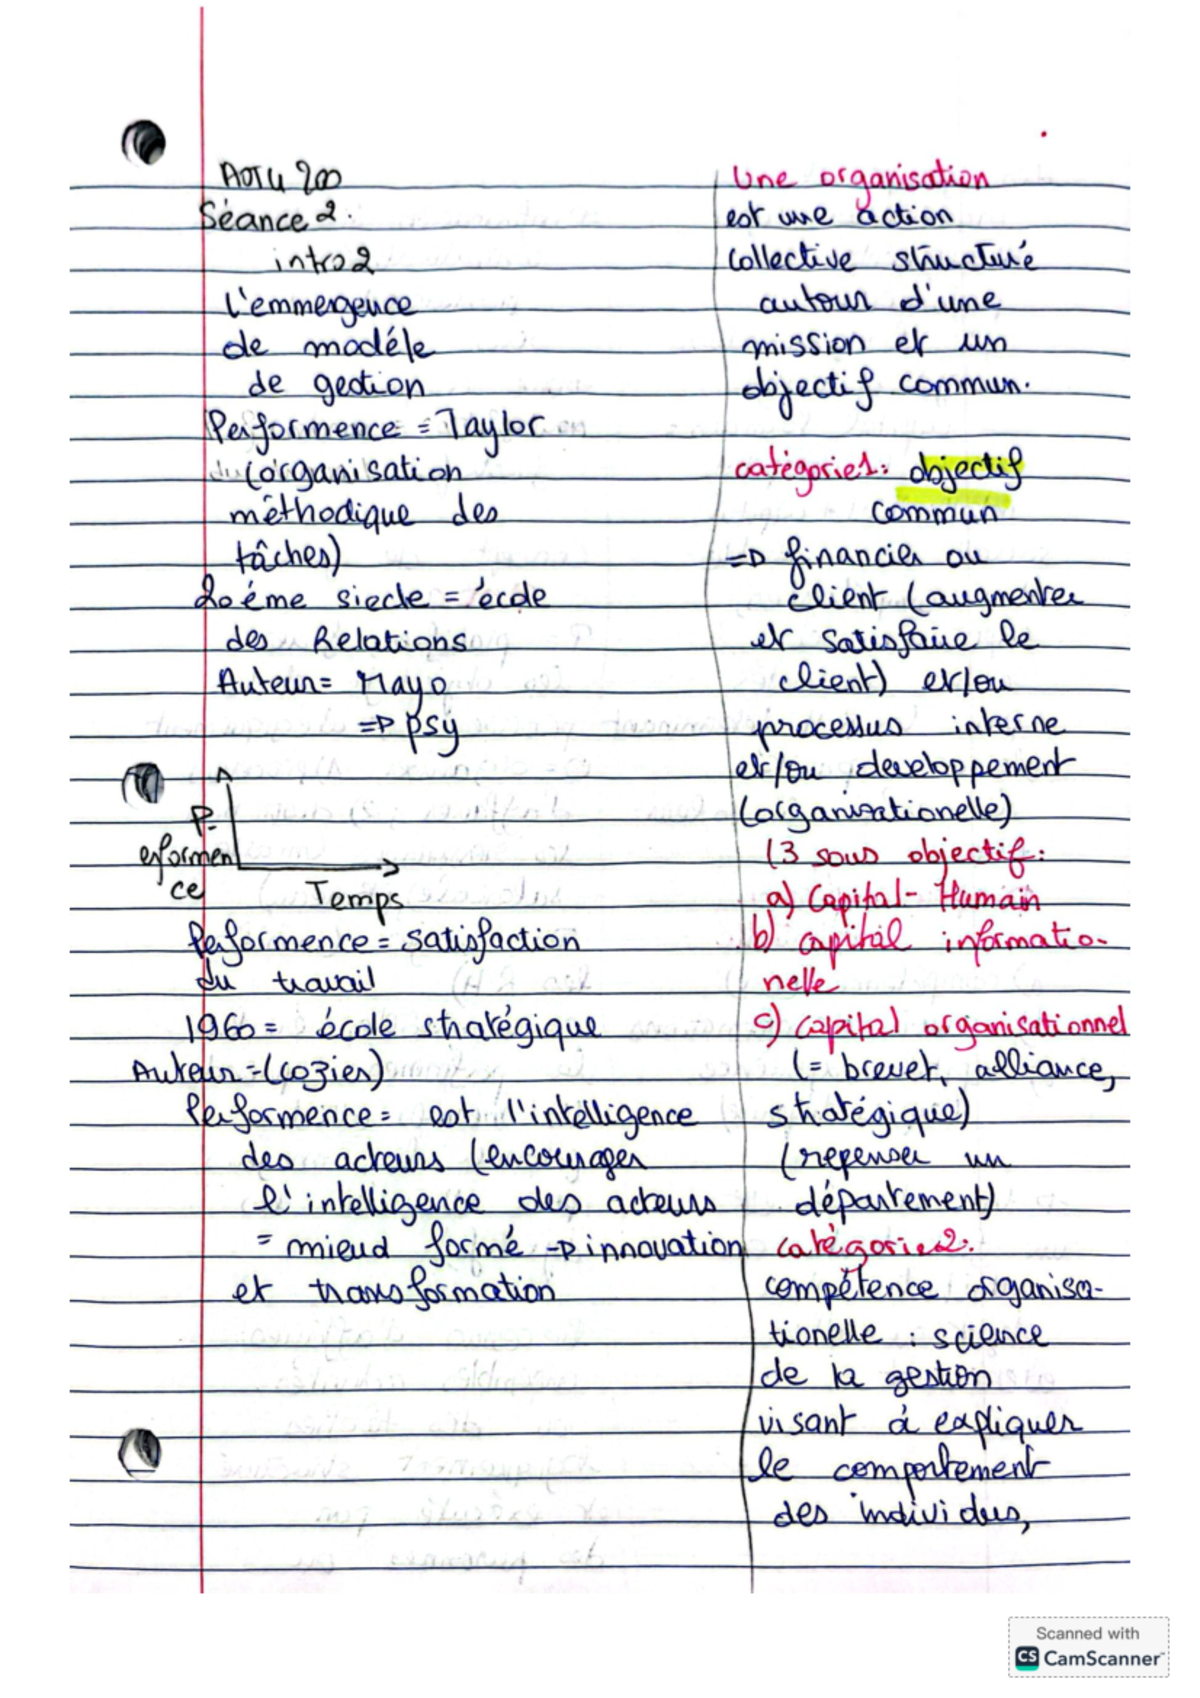 AOTU 200
Séance 2.
intro 2
l'emmergence
de modéle
de gestion
Performence = Taylor
(organisation
méthodique des
tâches)
20éme siecle = école
des Relations
Auteur = Mayo
=> psy
P-
erformen
ce
Temps
Performence = satisfaction
du travail
1960 = école stratégique
Auteur = (cozier)
Performence = est l'intelligence
des acteurs (encourager
l'intelligence des acteurs
= mieud formé -> innovation
et transformation
Une organisation
est une action
collective structuré
autour d'une
mission et un
objectif commun.
catégorie1: objectif
commun
=> financier ou
client (augmenter
et satisfaire le
client) et/ou
processus interne
et/ou developpement
(organisationelle)
(3 sous objectif:
a) Capital-Humain
b) capital informatio-
nelle
c) capital organisationnel
(= brevet, alliance,
stratégique)
(repenser un
département)
catégorie2:
compétence organisa-
tionelle : science
de la gestion
visant à expliquer
le comportement
des individus,
Scanned with
CS CamScanner